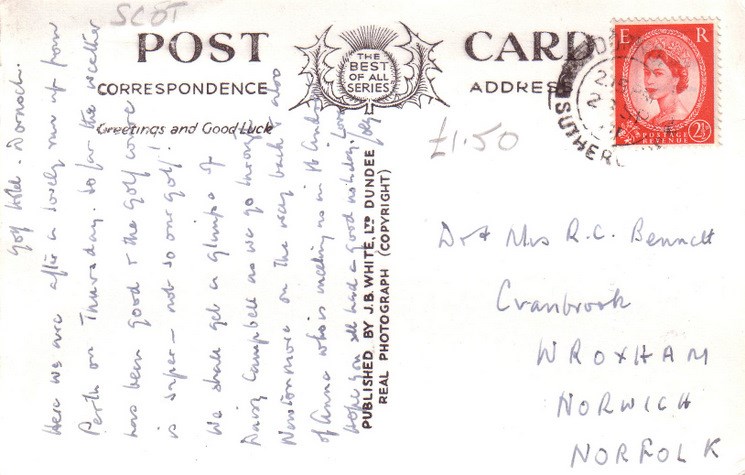 SCOT
POST CARD
THE
BEST
OF ALL
SERIES
CORRESPONDENCE
ADDRESS
Greetings and Good Luck
£1.50
E R
POSTAGE
REVENUE
2½D
SUTHER
Golf Hotel - Dornoch.
Here we are after a lovely run up from
Perth on Thursday. So far the weather
has been good & the golf course
is super - not so our golf!
We shall get a glimpse of
Daisy Campbell as we go through
Newtonmore on the way back & also
of Anna who is meeting us in
Hope you all had a good holiday. Love
PUBLISHED BY J.B. WHITE, LTD DUNDEE
REAL PHOTOGRAPH (COPYRIGHT)
Dr & Mrs R.C. Bennett
Cranbrook
WROXHAM
NORWICH
NORFOLK